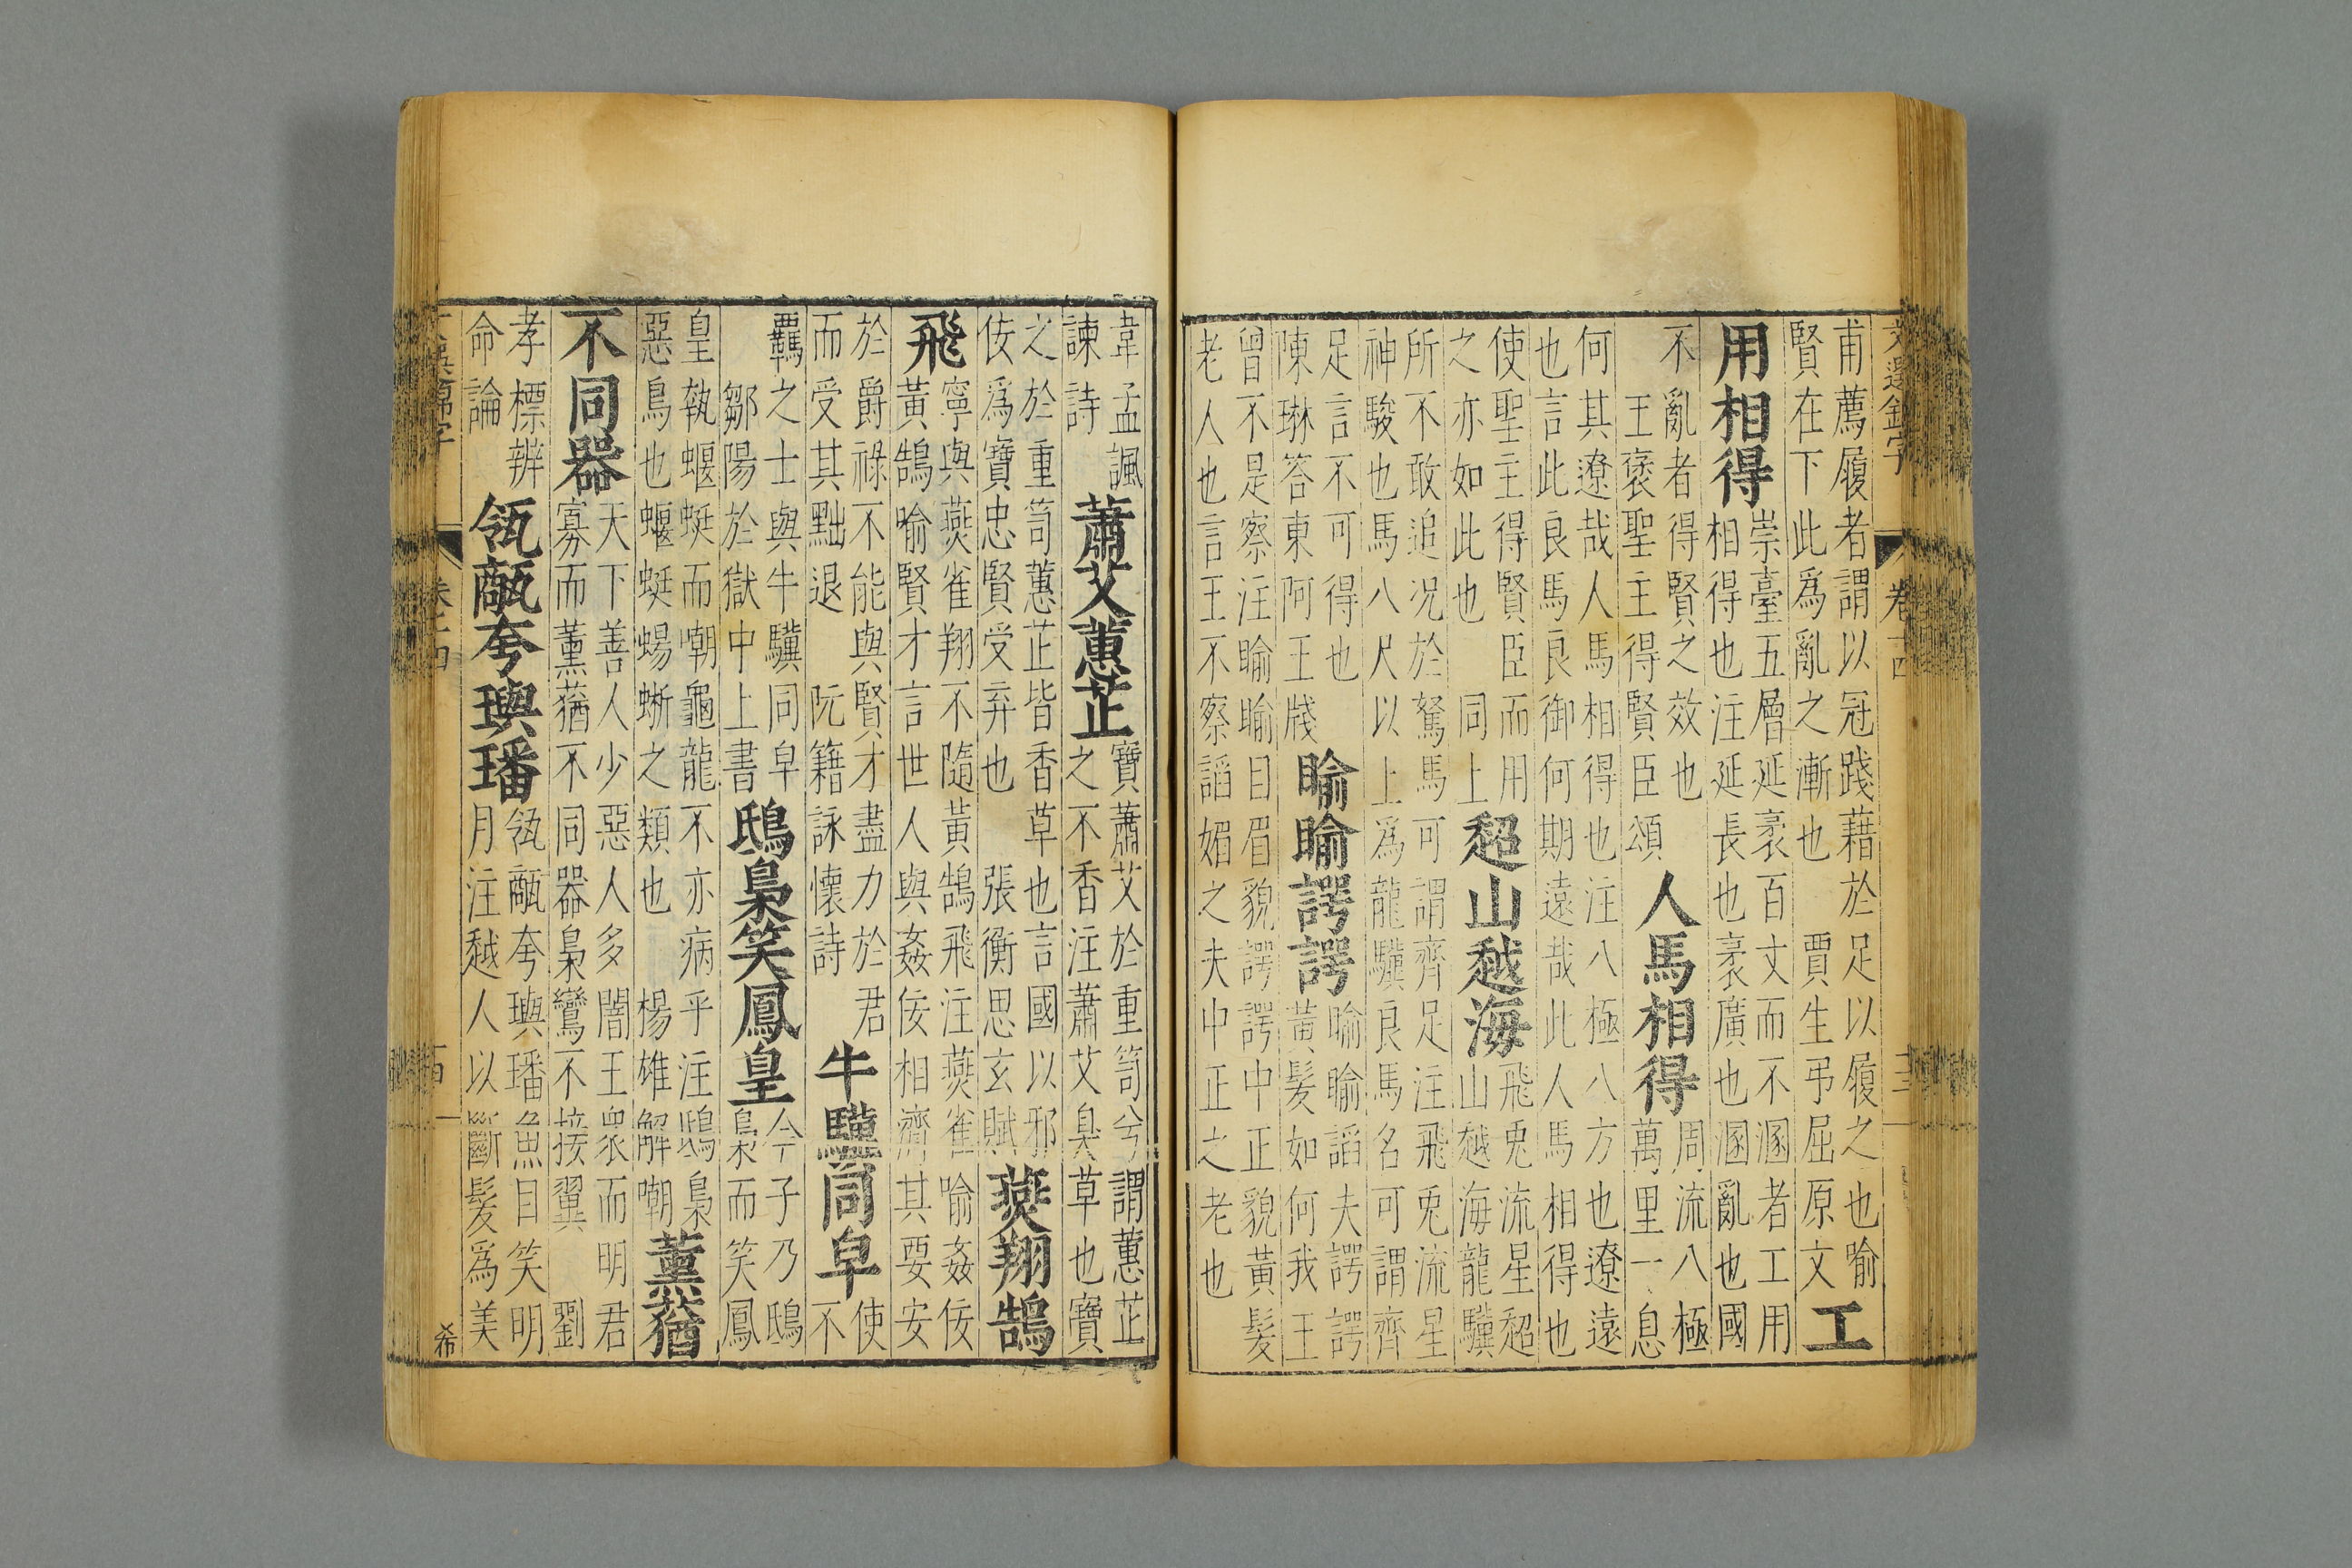 文選錦字
卷十四
十三
甫薦履者謂以冠踐藉於足以履之也喻
賢在下此爲亂之漸也 賈生弔屈原文
工
用相得
崇臺五層延袤百丈而不溷者工用
相得也注延長也袤廣也溷亂也國
不亂者得賢之效也
王褒聖主得賢臣頌
人馬相得
周流八極
萬里一息
何其遼哉人馬相得也注八極八方也遼遠
也言此良馬良御何期遠哉此人馬相得也
使聖主得賢臣而用
之亦如此也 同上
超山越海
飛兎流星超
山越海龍驥
所不敢追况於駑馬可謂齊足注飛兎流星
神駿也馬八尺以上爲龍驥良馬名可謂齊
足言不可得也
陳琳答東阿王牋
睮睮諤諤
睮睮謟夫諤諤
黃髮如何我王
曾不是察注睮睮目眉貌諤諤中正貌黃髮
老人也言王不察謟媚之夫中正之老也
韋孟諷
諫詩
蕭艾蕙芷
寶蕭艾於重笥兮謂蕙芷
之不香注蕭艾臭草也寶
之於重笥蕙芷皆香草也言國以邪
佞爲寶忠賢受弃也 張衡思玄賦
燕翔鵠
飛
寧與燕雀翔不隨黃鵠飛注燕雀喻姦佞
黃鵠喻賢才言世人與姦佞相濟其要安
於爵祿不能與賢才盡力於君
而受其黜退 阮籍詠懷詩
牛驥同皁
使
不
羈之士與牛驥同皁
鄒陽於獄中上書
鴟梟笑鳳皇
今子乃鴟
梟而笑鳳
皇執蝘蜓而嘲龜龍不亦病乎注鴟梟
惡鳥也蝘蜓蜴蜥之類也 楊雄解嘲
薰蕕
不同器
天下善人少惡人多闇主衆而明君
寡而薰蕕不同器梟鸞不接翼 劉
孝標辨
命論
瓴甋夸璵璠
瓴甋夸璵璠魚目笑明
月注越人以斷髮爲美
希